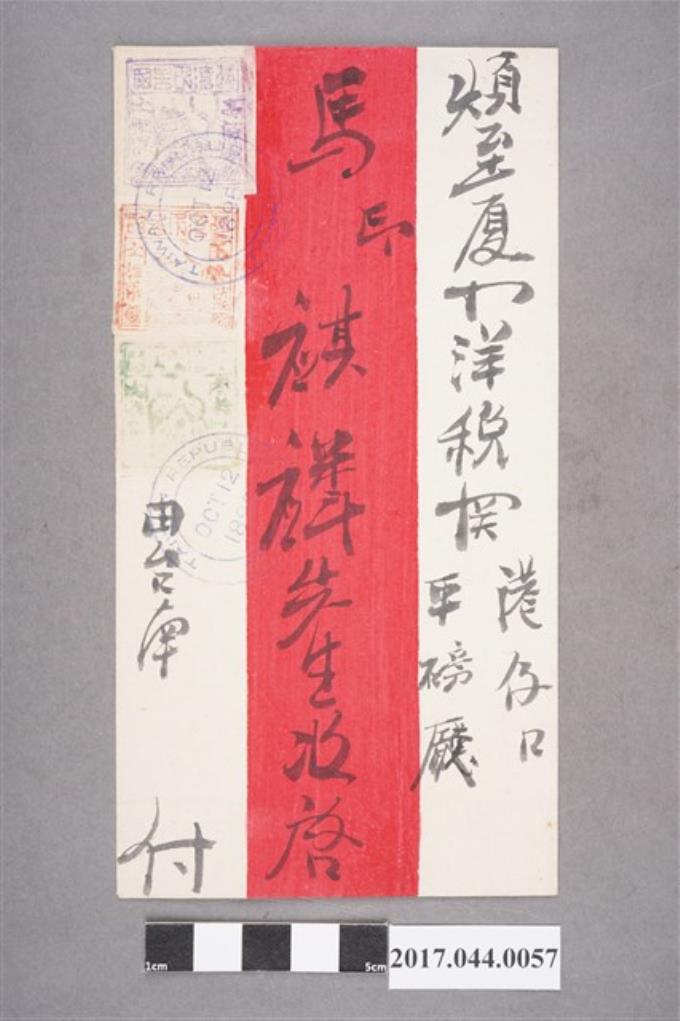 煩至廈中洋稅関
港仔口
平磅厰
馬印
祺祥先生收啓
由台南
付
OCT 12
REPUBLI
OCT 12
189
1cm
5cm
2017.044.0057